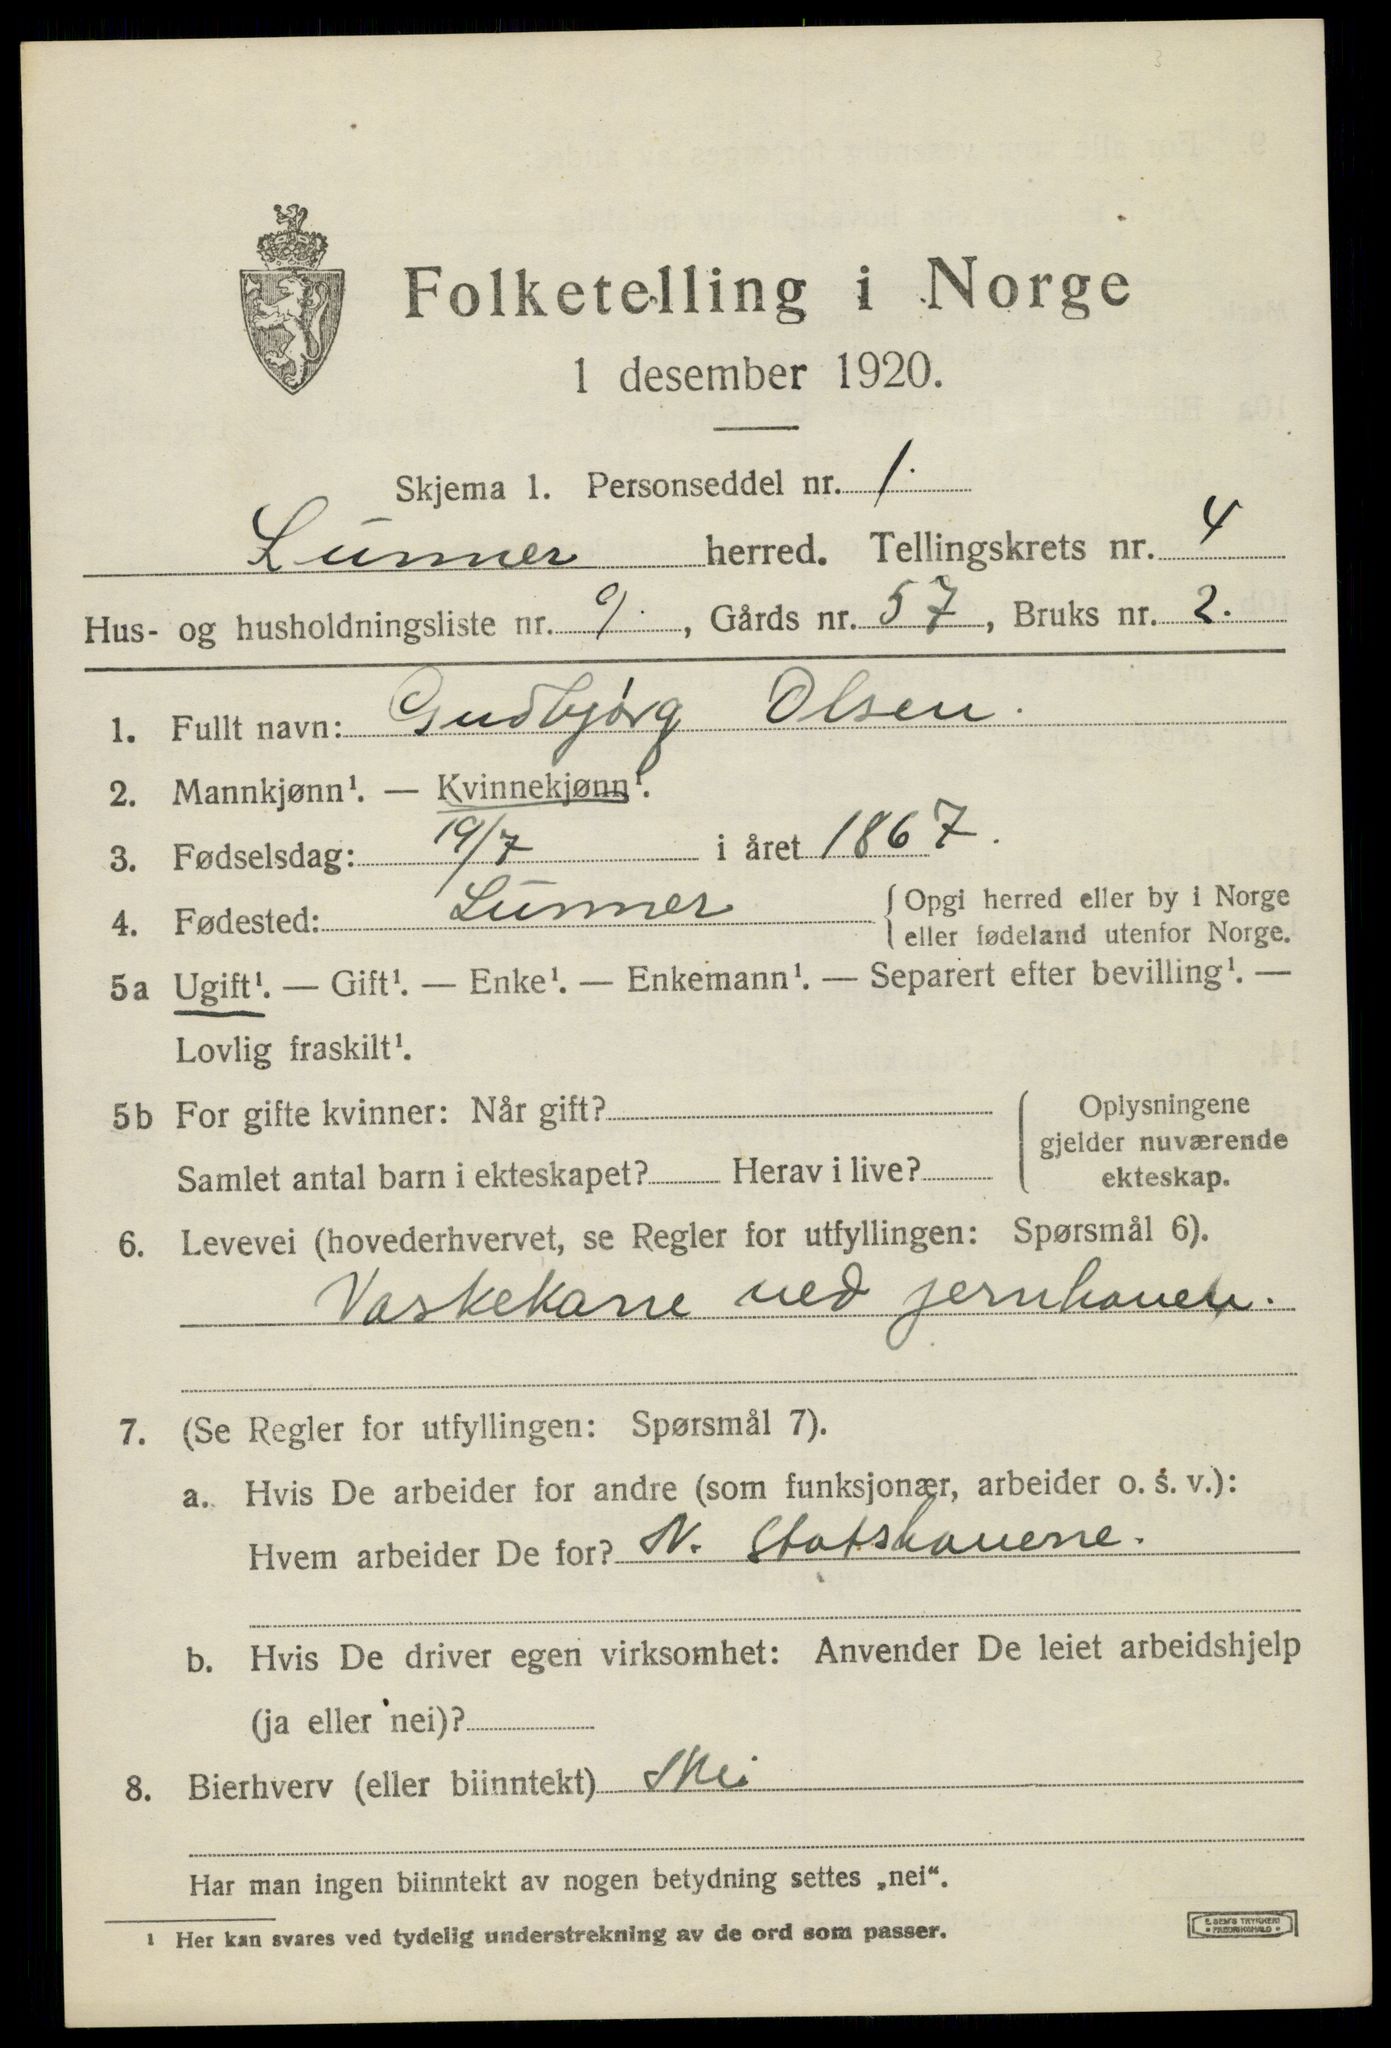 Folketelling i Norge
1 desember 1920.
Skjema 1. Personseddel nr. 1.
Lunner herred. Tellingskrets nr. 4
Hus- og husholdningsliste nr. 9., Gårds nr. 57, Bruks nr. 2.
1. Fullt navn: Gudbjørg Olsen.
2. Mannkjønn¹. — Kvinnekjønn¹.
3. Fødselsdag: 19/7 i året 1867.
4. Fødested: Lunner { Opgi herred eller by i Norge
eller fødeland utenfor Norge.
5a Ugift¹. — Gift¹. — Enke¹. — Enkemann¹. — Separert efter bevilling¹. —
Lovlig fraskilt¹.
5b For gifte kvinner: Når gift?
Samlet antal barn i ekteskapet? Herav i live?
Oplysningene
gjelder nuværende
ekteskap.
6. Levevei (hovederhvervet, se Regler for utfyllingen: Spørsmål 6).
Vaskekone ved jernbanen.
7. (Se Regler for utfyllingen: Spørsmål 7).
a. Hvis De arbeider for andre (som funksjonær, arbeider o. s. v.):
Hvem arbeider De for? N. Statsbanerne.
b. Hvis De driver egen virksomhet: Anvender De leiet arbeidshjelp
(ja eller nei)?
8. Bierhverv (eller biinntekt) Nei
Har man ingen biinntekt av nogen betydning settes „nei“.
1 Her kan svares ved tydelig understrekning av de ord som passer.
E. SEM'S TRYKKERI
FREDRIKSHALD